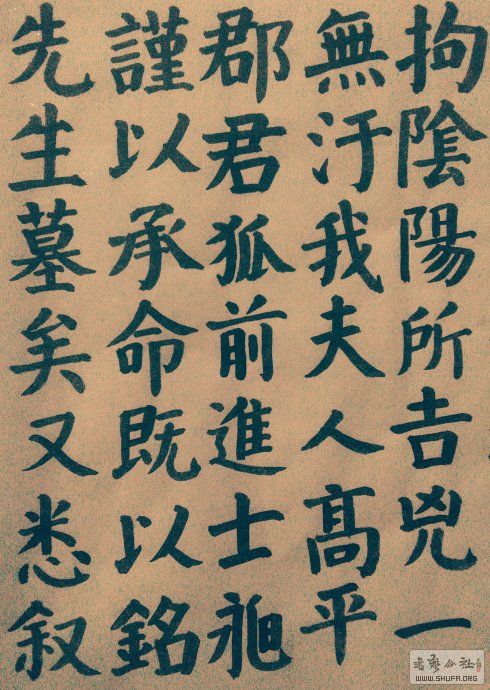 拘陰陽所吉兇一
無汙我夫人髙平
郡君狐前進士
謹以承命既以銘
先生墓矣又悉叙
书艺公社
WWW.SHUFA.ORG